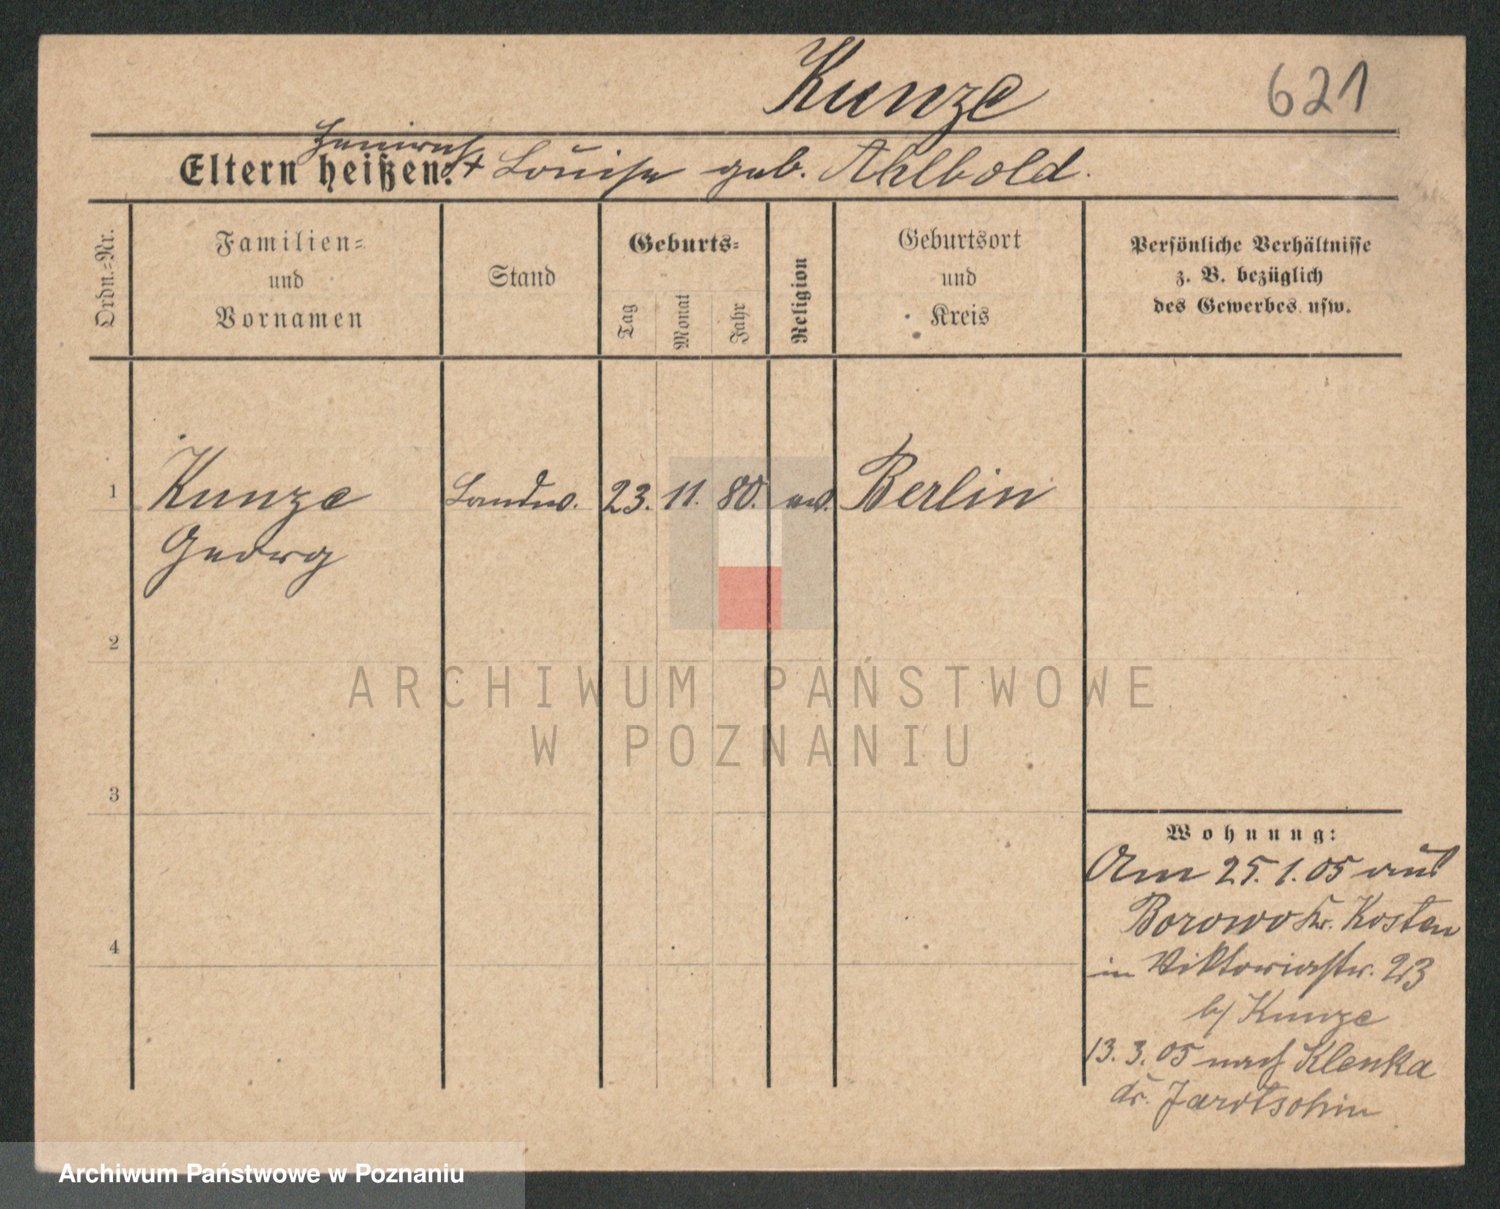 Kunze
621
Heinrich
Eltern heißen: + Louise geb. Ahlbold.
Ordn.=Nr.
Familien=
und
Vornamen
Stand
Geburts=
Tag
Monat
Jahr
Religion
Geburtsort
und
Kreis
Persönliche Verhältnisse
z. B. bezüglich
des Gewerbes usw.
1 Kunze Landw. 23. 11. 80. ev. Berlin
Georg
2
3
4
Wohnung:
Am 25. 1. 05 aus
Borowo Kr. Kosten
in Viktoriastr. 23
b/ Kunze
13. 3. 05 nach Klenka
Kr. Jarotschin
ARCHIWUM PAŃSTWOWE
W POZNANIU
Archiwum Państwowe w Poznaniu